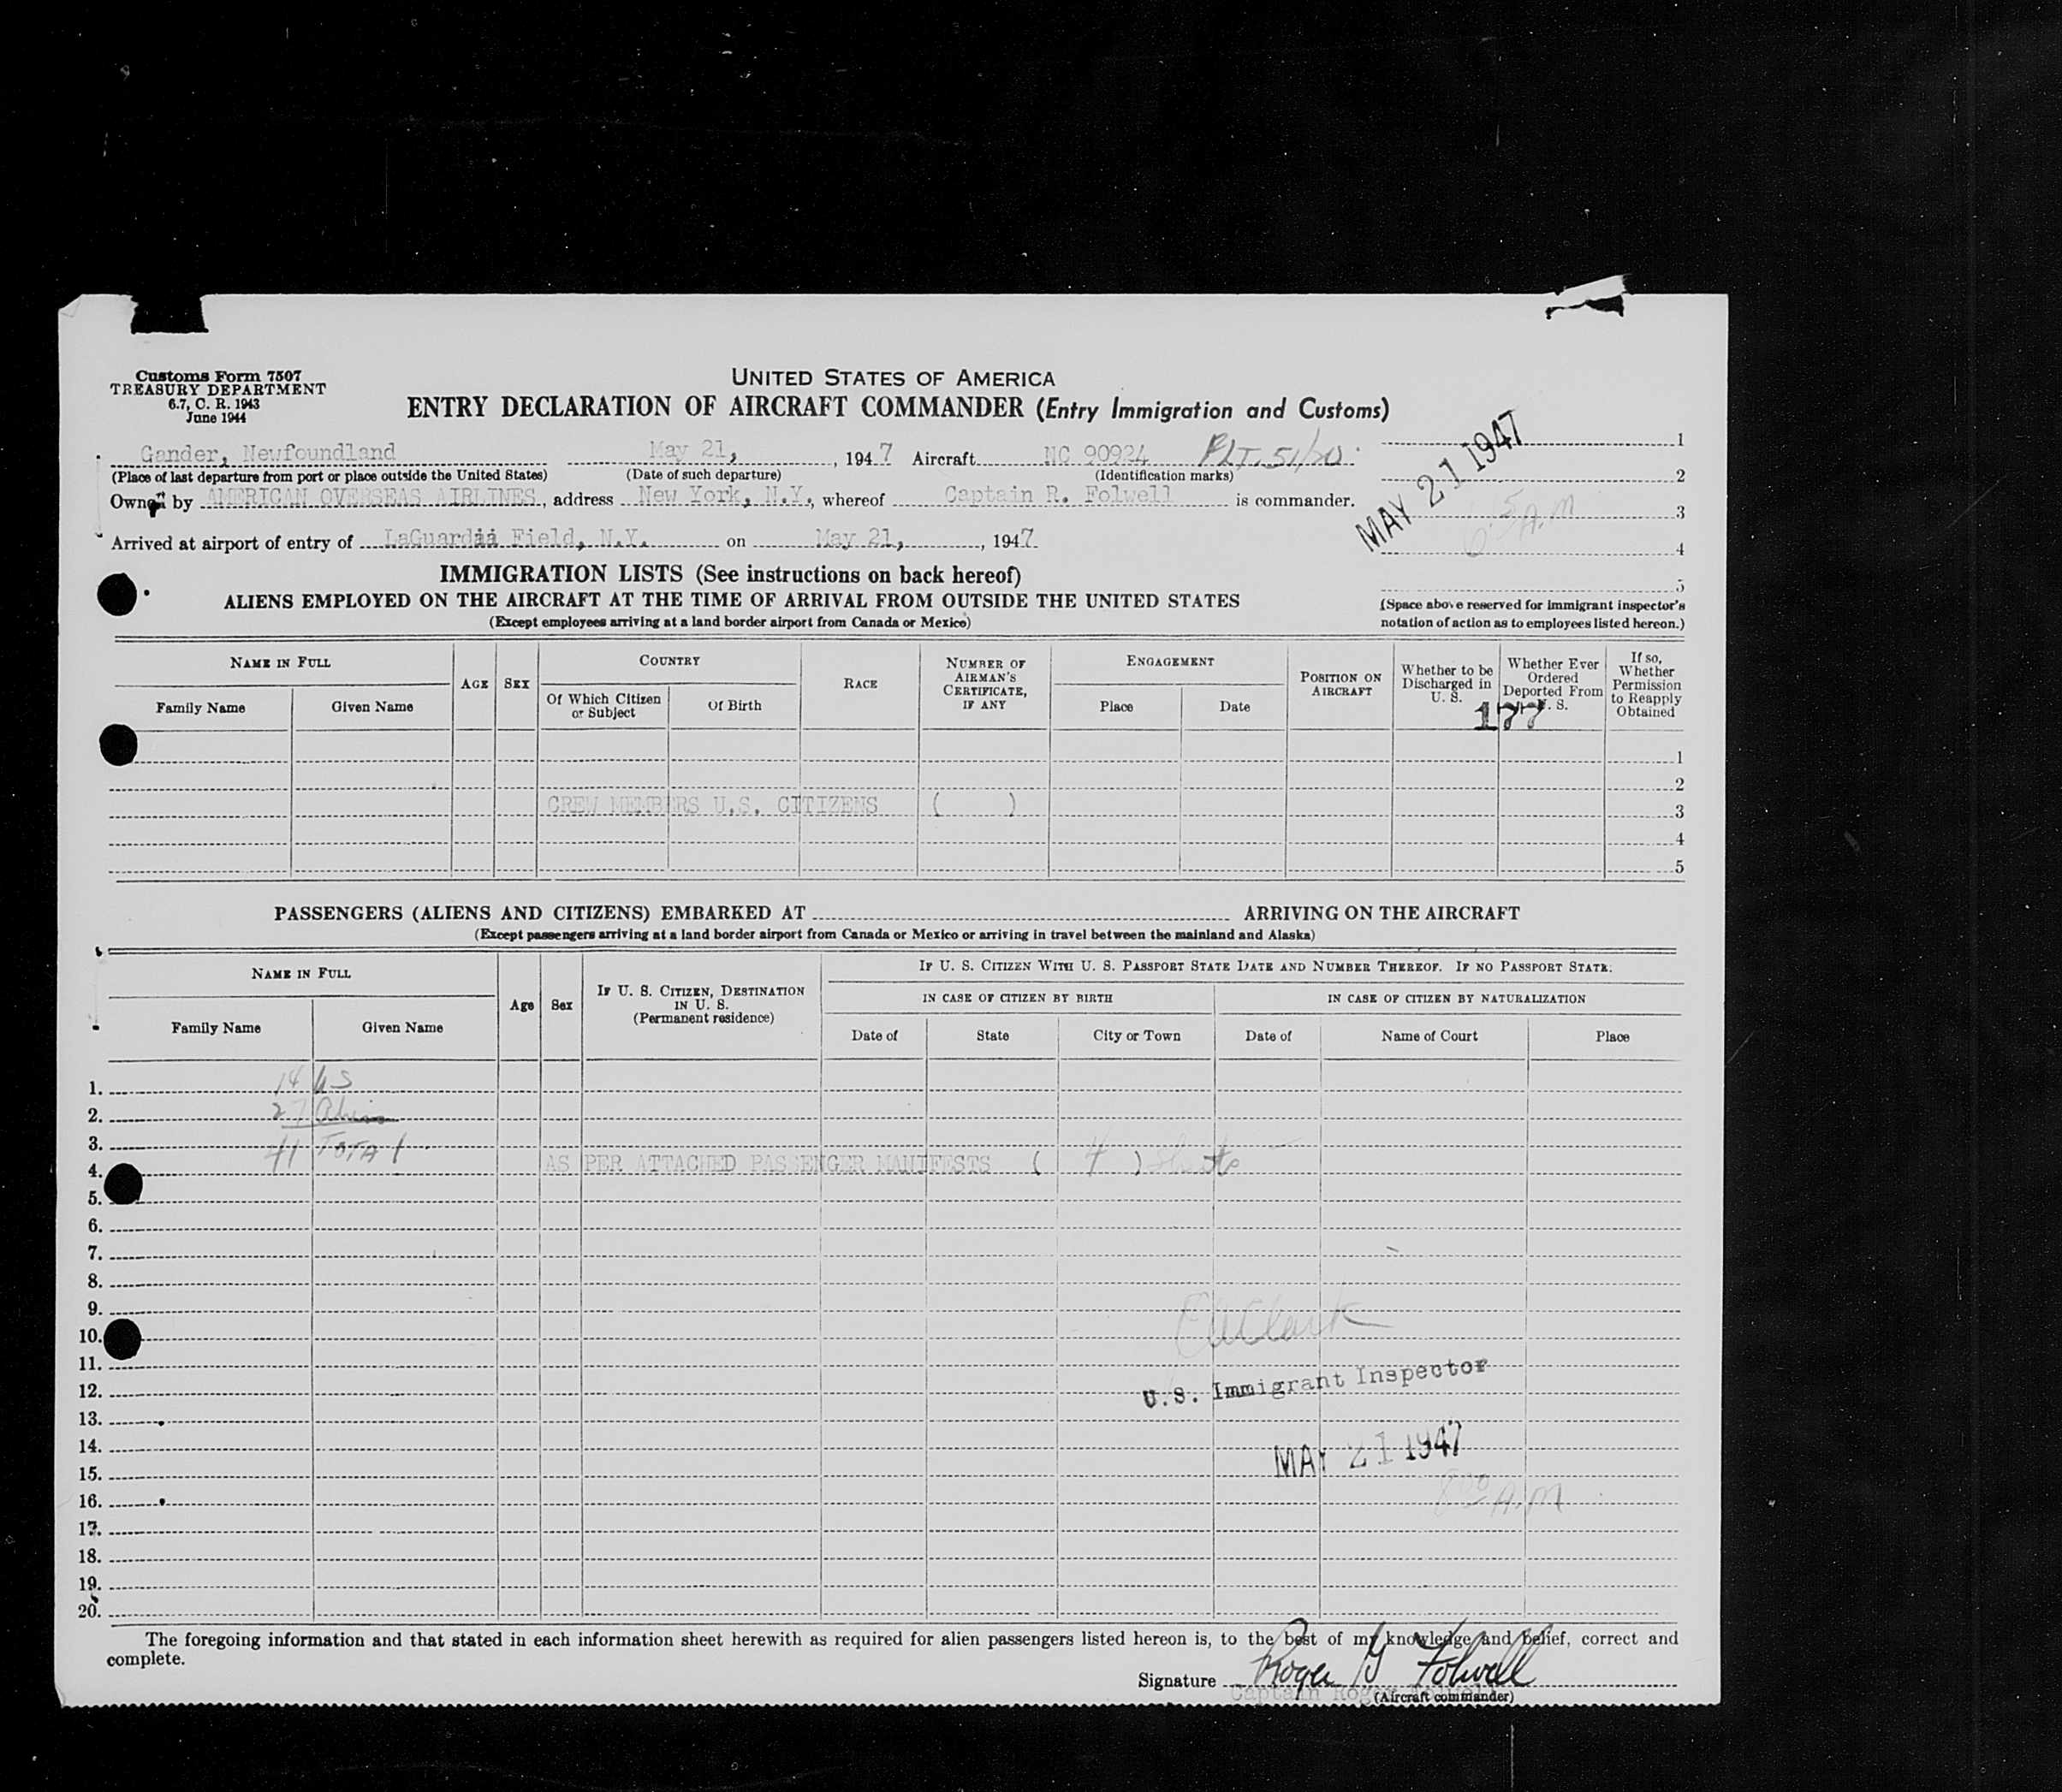 Customs Form 7507
TREASURY DEPARTMENT
6.7, C. R. 1943
June 1944
UNITED STATES OF AMERICA
ENTRY DECLARATION OF AIRCRAFT COMMANDER (Entry Immigration and Customs)
Gander, Newfoundland May 21, , 1947 Aircraft NC 90924 1
(Place of last departure from port or place outside the United States) (Date of such departure) (Identification marks) 2
MAY 21 1947
Owned by AMERICAN OVERSEAS AIRLINES, address New York, N.Y., whereof Captain R. Folwell is commander.
3
A.M
Arrived at airport of entry of LaGuardia Field, N.Y. on May 21, , 1947 4
IMMIGRATION LISTS (See instructions on back hereof) 5
ALIENS EMPLOYED ON THE AIRCRAFT AT THE TIME OF ARRIVAL FROM OUTSIDE THE UNITED STATES
(Except employees arriving at a land border airport from Canada or Mexico)
(Space above reserved for immigrant inspector's
notation of action as to employees listed hereon.)
NAME IN FULL
Family Name Given Name
AGE
SEX
COUNTRY
Of Which Citizen or Subject
Of Birth
RACE
NUMBER OF AIRMAN'S CERTIFICATE, IF ANY
ENGAGEMENT
Place Date
POSITION ON AIRCRAFT
Whether to be Discharged in U. S.
Whether Ever Ordered Deported From U. S.
If so, Whether Permission to Reapply Obtained
177
1
2
CREW MEMBERS U.S. CITIZENS ( ) 3
4
5
PASSENGERS (ALIENS AND CITIZENS) EMBARKED AT ARRIVING ON THE AIRCRAFT
(Except passengers arriving at a land border airport from Canada or Mexico or arriving in travel between the mainland and Alaska)
NAME IN FULL
Family Name Given Name
Age
Sex
IF U. S. CITIZEN, DESTINATION IN U. S. (Permanent residence)
IF U. S. CITIZEN WITH U. S. PASSPORT STATE DATE AND NUMBER THEREOF. IF NO PASSPORT STATE.
IN CASE OF CITIZEN BY BIRTH
IN CASE OF CITIZEN BY NATURALIZATION
Date of State City or Town Date of Name of Court Place
1. 14 US
2. 27 Alien
3. 41 Total
4. AS PER ATTACHED PASSENGER MANIFESTS ( 4 ) Sheets
5.
6.
7.
8.
9.
10. Clark
11.
12. U.S. Immigrant Inspector
13.
14. MAY 21 1947
15.
16. 8 00 A.M
17.
18.
19.
20.
The foregoing information and that stated in each information sheet herewith as required for alien passengers listed hereon is, to the best of my knowledge and belief, correct and
complete.
Signature Roger G Folwell
Captain Roger Folwell
(Aircraft commander)